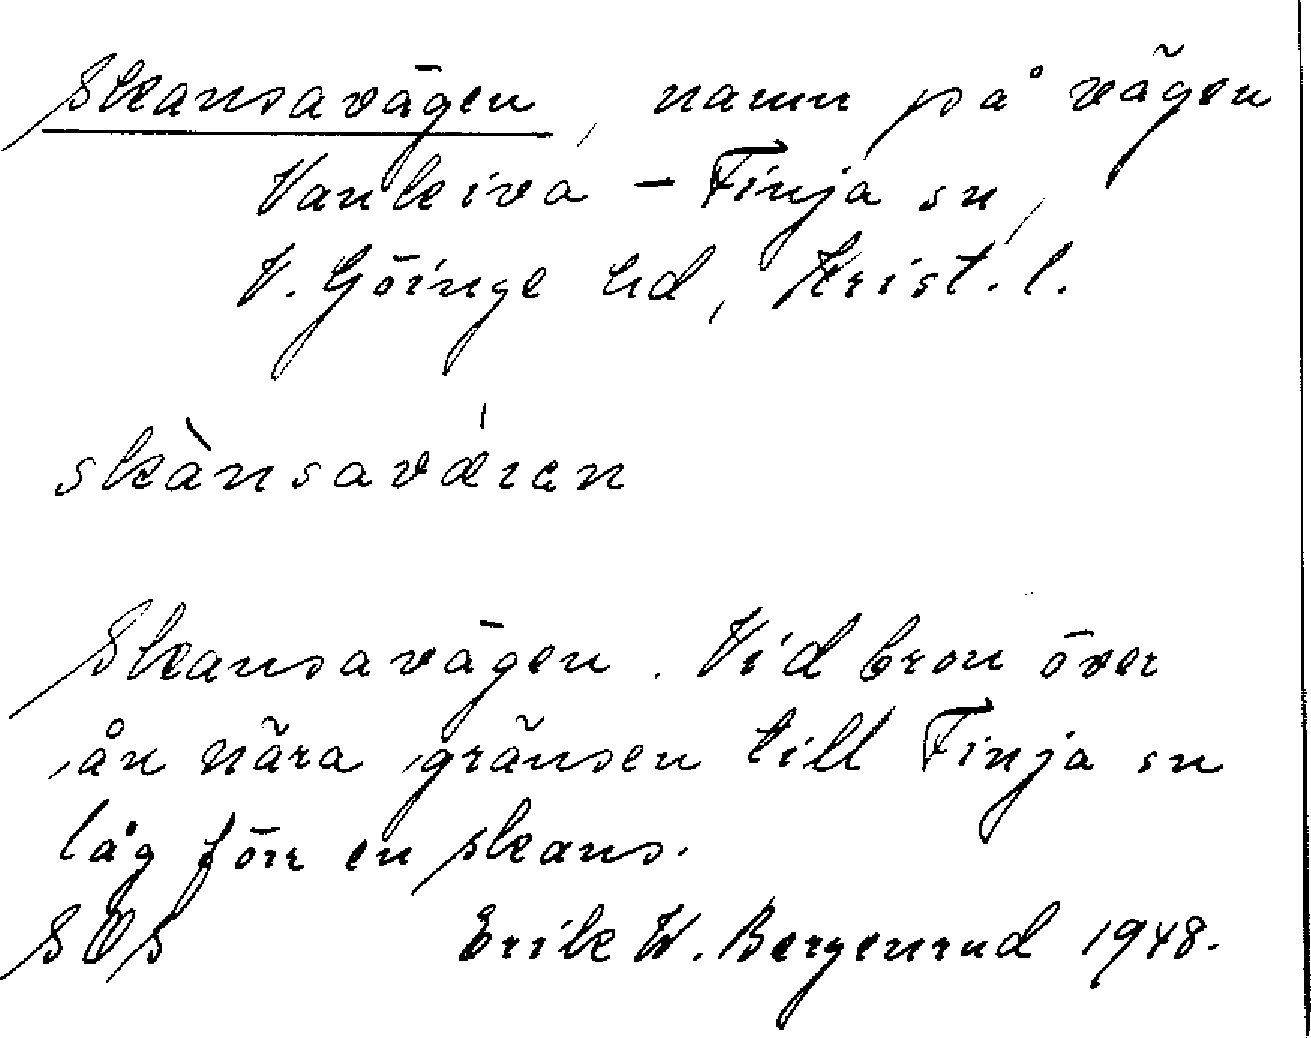 Skansavägen, namn på vägen
Vankiva – Finja sn,
V. Göinge hd, Krist. l.
skànsavǽren
Skansavägen. Vid bron över
ån nära gränsen till Finja sn
låg förr en skans.
SOS Erik W. Bergenrud 1948.